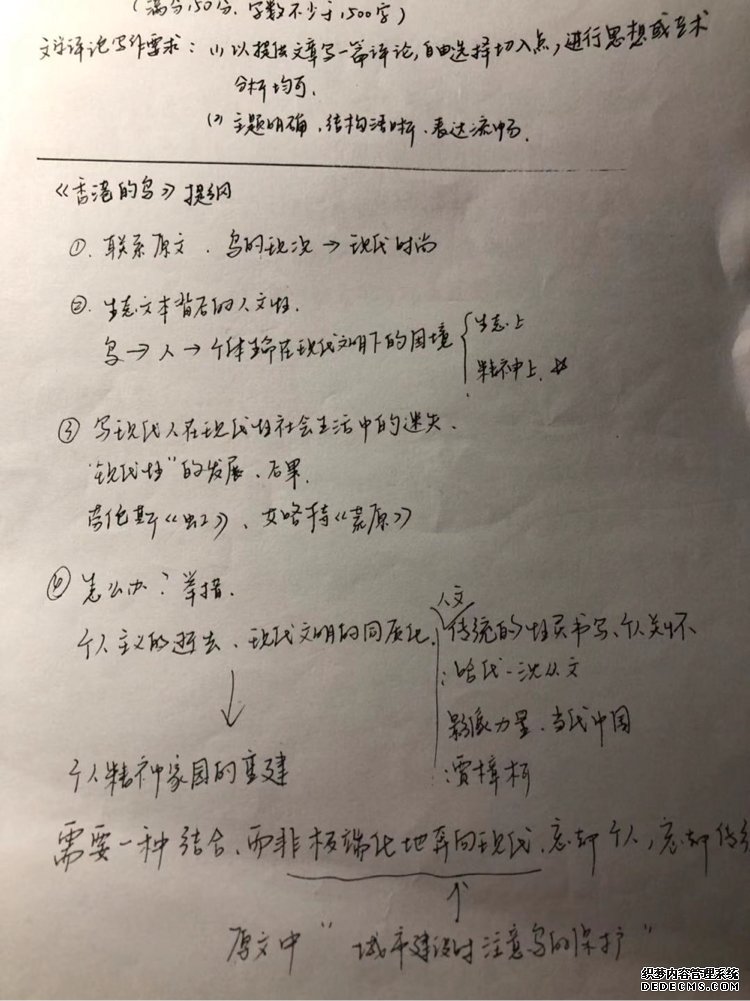 (满分150分、字数不少于1500字)
文学评论写作要求：(1) 以提供文章写一篇评论，自由选择切入点，进行思想或艺术
分析均可.
(2) 主题明确、结构清晰、表达流畅.
《香港的鸟》提纲
①. 联系原文、鸟的现况→现代时尚
②. 生态文本背后的人文性.
鸟→人→个体生命在现代文明下的困境
生态上
精神上.
③ 写现代人在现代性社会生活中的迷失.
"现代性"的发展、后果.
劳伦斯《虹》、艾略特《荒原》
④ 怎么办？举措.
人文
个人主义的逝去、现代文明的同质化. 传统的性灵书写、个人关怀
：哈代-沈从文
影像力量、当代中国
个人精神家园的重建
：贾樟柯
需要一种结合、而非极端化地奔向现代、忘却个人，忘却传
原文中"城市建设时注意鸟的保护"
织梦内容管理系统
DEDECMS.COM